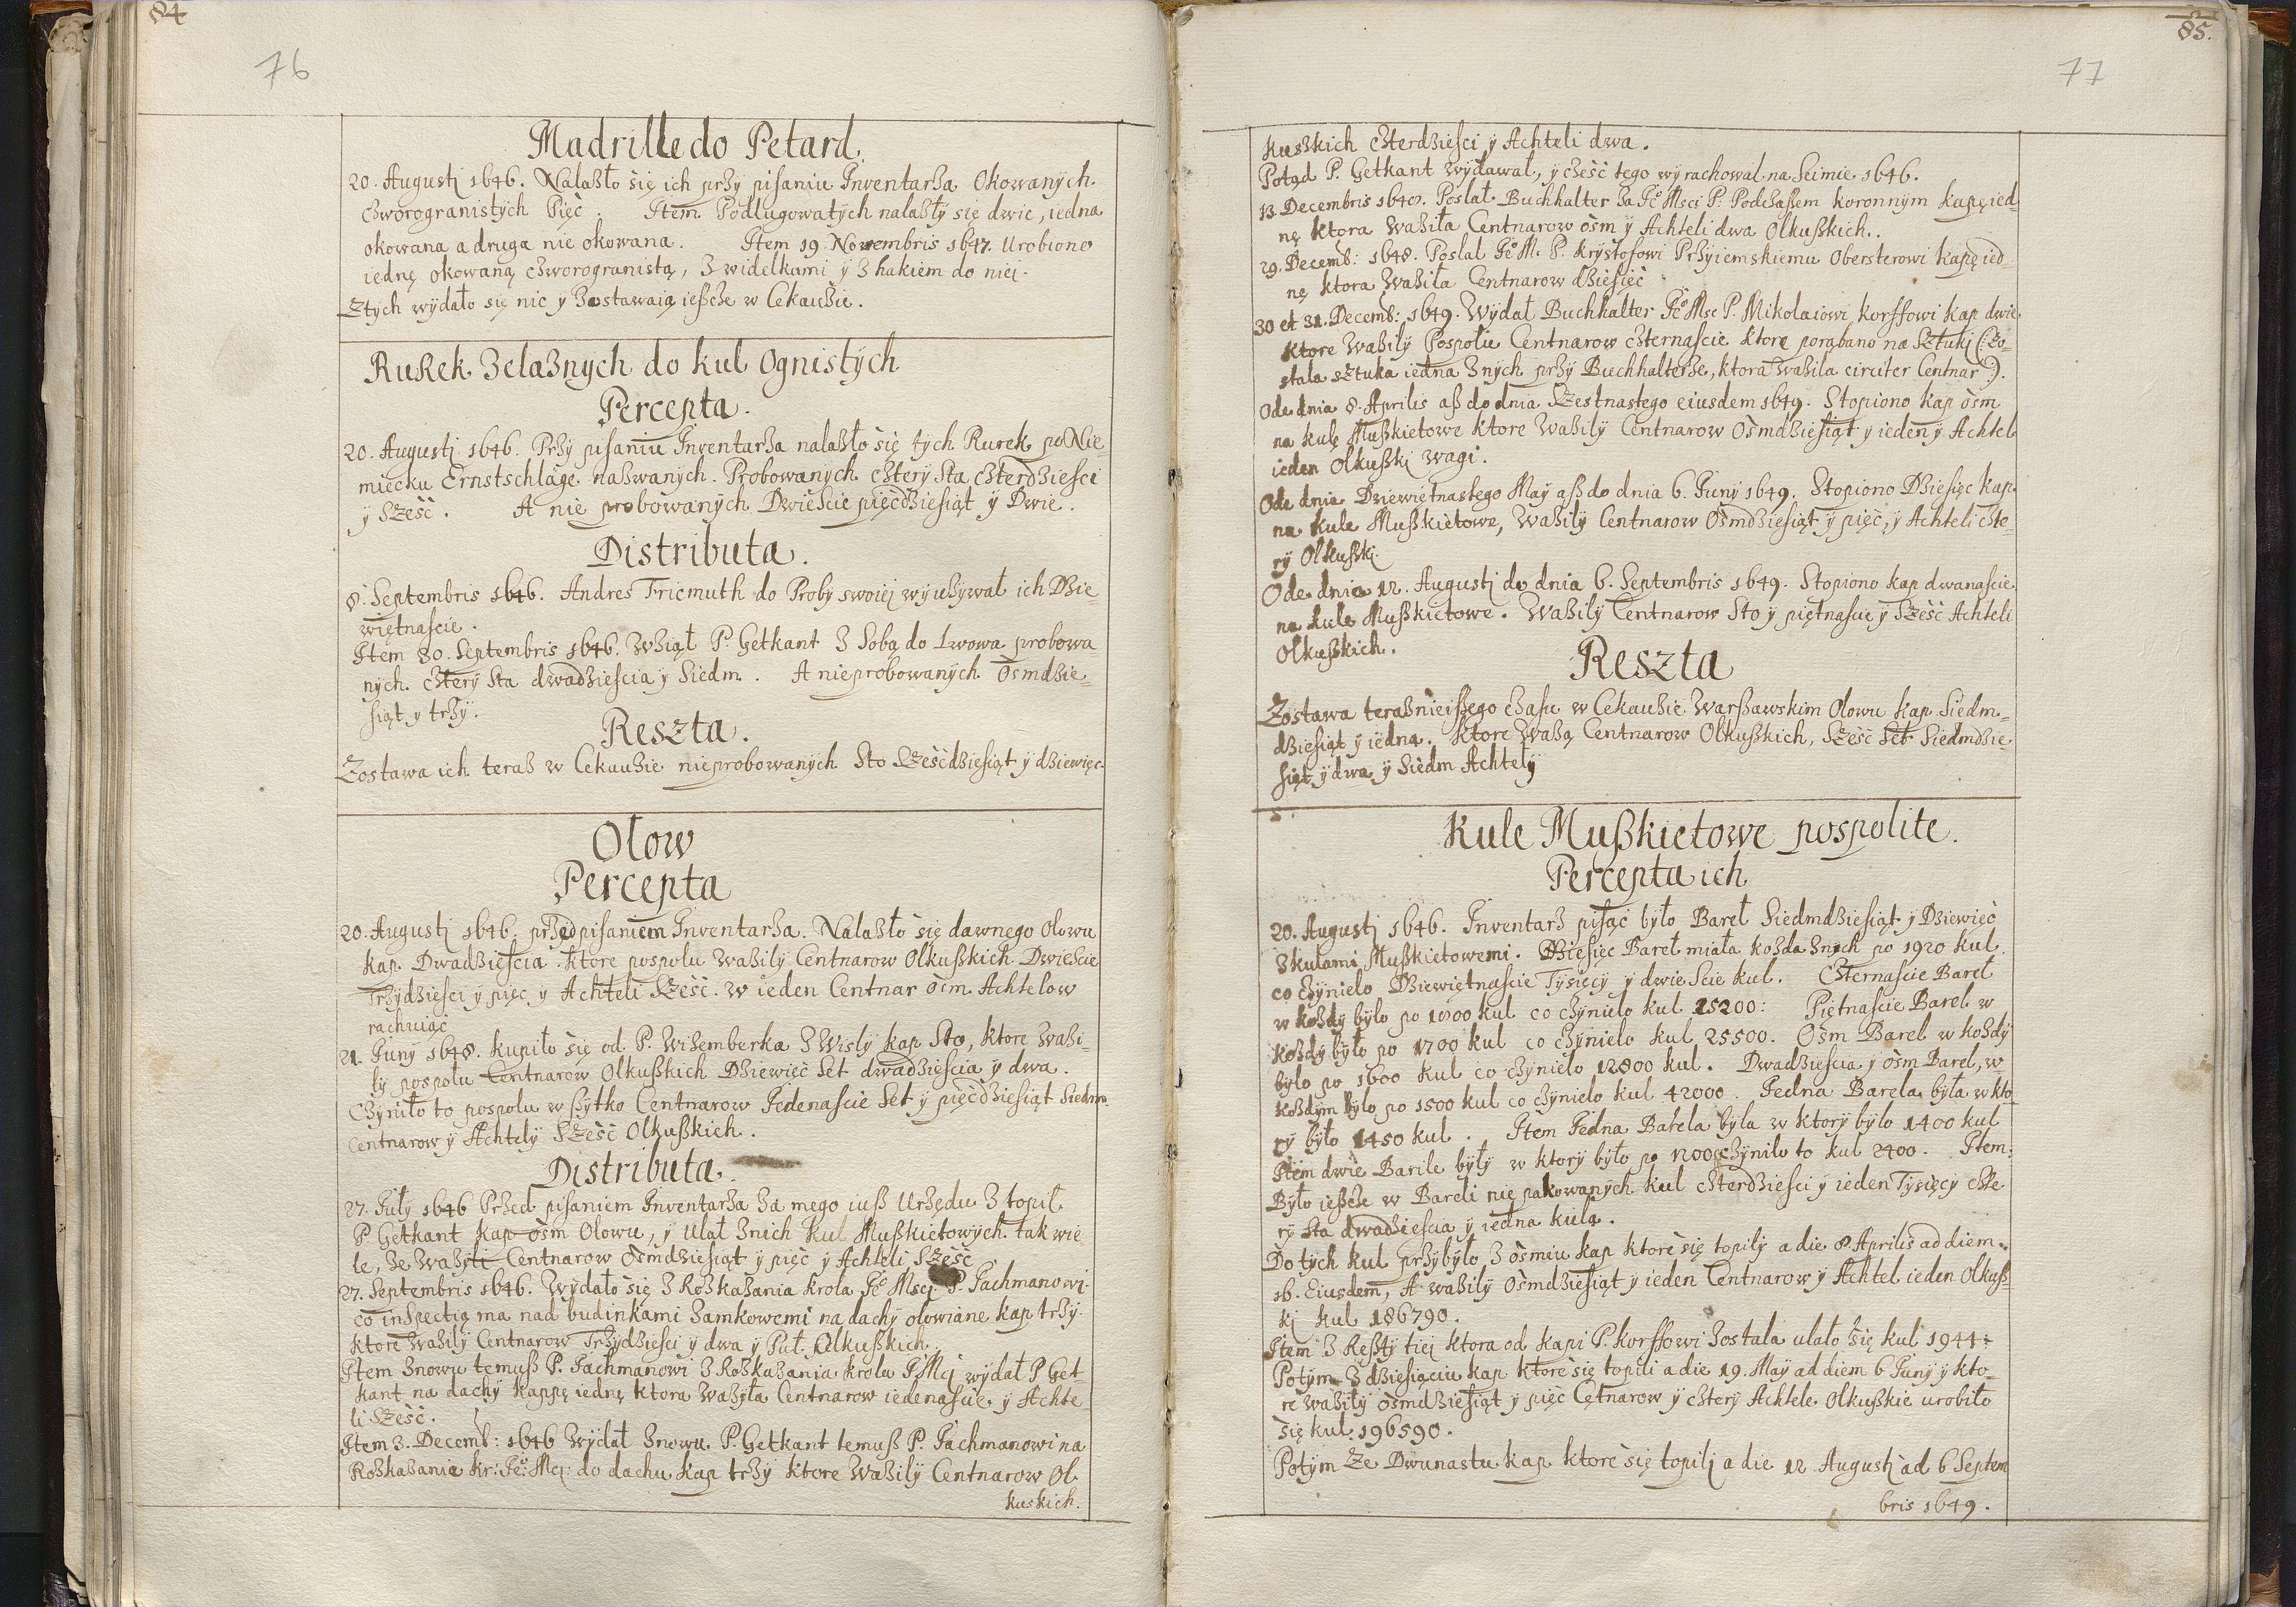 84
76
Madrille do Petard.
20. Augusti 1646. Nalazło się ich przy pisaniu Inventarza Okowanych
czworogranistych Pięć. Item Podlugowatych nalazły się dwie, iedna
okowana a druga nie okowana. Item 19. Novembris 1647. Urobiono
iednę okowaną czworogranistą, z widelkami y z hakiem do niei.
Z tych wydało się nic y zostawaią ieszcze w Cekauzie.
Rurek Zelaznych do kul Ognistych
Percepta.
20. Augusti 1646. Przy pisaniu Inventarza nalazło się tych Rurek po Nie
miecku Ernstschläge nazwanych. Probowanych cztery sta czterdziesci
y szesć. A nie probowanych Dwiescie pięcdziesiąt y Dwie.
Distributa.
8. Septembris 1646. Andres Fricmuth do Proby swoiej wyużywał ich Dzie=
więtnascie.
Item 30. Septembris 1646. Wziął P. Getkant z sobą do Lwowa probowa
nych cztery sta dwadziescia y siedm. A nieprobowanych Osmdzie=
siąt y trzy.
Reszta.
Zostawa ich teraz w Cekauzie nieprobowanych Sto szescdziesiąt y dziewięc.
Ołow
Percepta
20. Augusti 1646. przed pisaniem Inventarza. Nalazło się dawnego Olowu
kap Dwadziescia ktore pospolu ważily Centnarow Olkußkich Dwiescie
Trzydziesci y pięc y Achteli szesć. w ieden Centnar osm Achtelow
rachuiąc
21. Juny 1648. kupiło się od P. Wizemberka z Wisly kap Sto, ktore wazi=
ły pospolu Centnarow Olkußkich Dziewięc set dwadziescia y dwa.
Czyniło to pospolu wszytko Centnarow Jedenascie set y pięcdziesiąt siedm
Centnarow y Achtely szesć Olkußkich.
Distributa.
27. July 1646 Przed pisaniem Inventarza za mego iuß Urzędu z topił
P. Getkant kap osm Olowu, y ulał znich kul Mußkietowych tak wie
le, ze wazyli Centnarow osmdziesiąt y pięc y Achteli szesć
27. Septembris 1646. Wydało się z Rozkazania krola Je° Msci P. Jachmanowi
co inspectią ma nad budinkami zamkowemi na dachy olowiane kap trzy
ktore wazily Centnarow Trzydziesci y dwa y Puł Olkußkich.
Item znowu temuß P. Jachmanowi z Rozkazania krola J° Mci wydał P Get
kant na dachy kappę iednę ktora wazyła Centnarow iedenascie y Achte
li szesć.
Item 3. Decemb: 1646 wydał znowu P. Getkant temuß P. Jachmanowi na
Rozkazanie kr: Je° Mci do dachu kap trzy ktore wazily Centnarow Ol
kuskich.
85.
77
kuszkich czterdziesci y Achteli dwa.
Potąd P. Getkant wydawał, y czesć tego wyrachował na Seimie 1646.
13. Decembris 1648. Posłał Buchhalter za Je° Msci P. Podczaßem koronnym kapę ied=
nę ktora wazila Centnarow osm y Achteli dwa Olkußkich.
29. Decemb: 1648. Posłał Je° M. P. krystofowi Przyiemskiemu Obersterowi kapę ied=
nę ktora wazila Centnarow dziesięc
30 et 31. Decemb: 1649. Wydał Buchhalter Je° Msc P. Mikolaiowi korffowi kap dwie
ktore wazily Pospolu Centnarow czternascie ktore porąbano na sztuki (: zo=
stala sztuka iedna z nych przy Buchhalterze, ktora wazila circiter Centnar :).
Ode dnia 8. Aprilis aß do dnia szestnastego eiusdem 1649. Stopiono kap osm
na kulę Mußkietowe ktore wazily Centnarow Osmdziesiąt y ieden y Achtel
ieden Olkußki wagi.
Ode dnia Dziewiętnastego May aß do dnia 6. Juny 1649. Stopiono Dziesięc kap
na kule Mußkietowe, wazily Centnarow Osmdziesiąt y pięc, y Achteli czte=
ry Olkußki.
Ode dnia 12. Augusti do dnia 6. Septembris 1649. Stopiono kap dwanascie
na kule Mußkietowe. Wazily Centnarow Sto y piętnascie y szesć Achteli
Olkußkich.
Reszta
Zostawa teraznieißego czasu w Cekauzie Warßawskim Olowu kap siedm=
dziesiąt y iedna. ktore wazą Centnarow Olkußkich, szesć set siedmdzie
siąt y dwa y siedm Achtely
Kule Mußkietowe pospolite.
Percepta ich
20. Augusti 1646. Inventarz pisąc było Bareł siedmdziesiąt y Dziewięc
z kulami Mußkietowemi. Dziesięc Bareł miała kozda znich po 1920 kul
co czynielo Dziewiętnascie Tysięcy y dwie scie kul. Czternascie Bareł
w kozdy było po 1800 kul co czyniło kul 25200: Piętnascie Bareł w
kozdy było po 1700 kul co czynielo kul 25500. Osm Bareł w kozdy
było po 1600 kul co czynielo 12800 kul. Dwadziescia y osm Bareł, w
kozdym było po 1500 kul co czynielo kul 42000. Jedna Barela była w kto=
ry było 1450 kul. Item Jedna Barela była w ktory było 1400 kul
Item dwie Barile były w ktory było po 1200 czyniło to kul 2400. Item:
Było ießcze w Bareli nie pakowanych kul czterdziesci y ieden Tysięcy czte
ry sta dwadziescia y iedna kula.
Do tych kul przybyło z osmiu kap ktore się topily a die 8 Aprilis ad diem
16. Eiusdem, A wazily Osmdziesiąt y ieden Centnarow y Achtel ieden Olkuß
ki kul 186790.
Item z Reßty tiei ktora od kapi P. korffowi zostala ulało się kul 1944:
Potym z dziesiąciu kap ktore się topili a die 19. May ad diem 6 Juny y kto=
re wazily osmdziesiąt y pięc Cętnarow y cztery Achtele Olkußkie urobiło
się kul 196590.
Potym ze Dwunastu kap ktore się topili a die 12 Augusti ad 6 Septem
bris 1649.